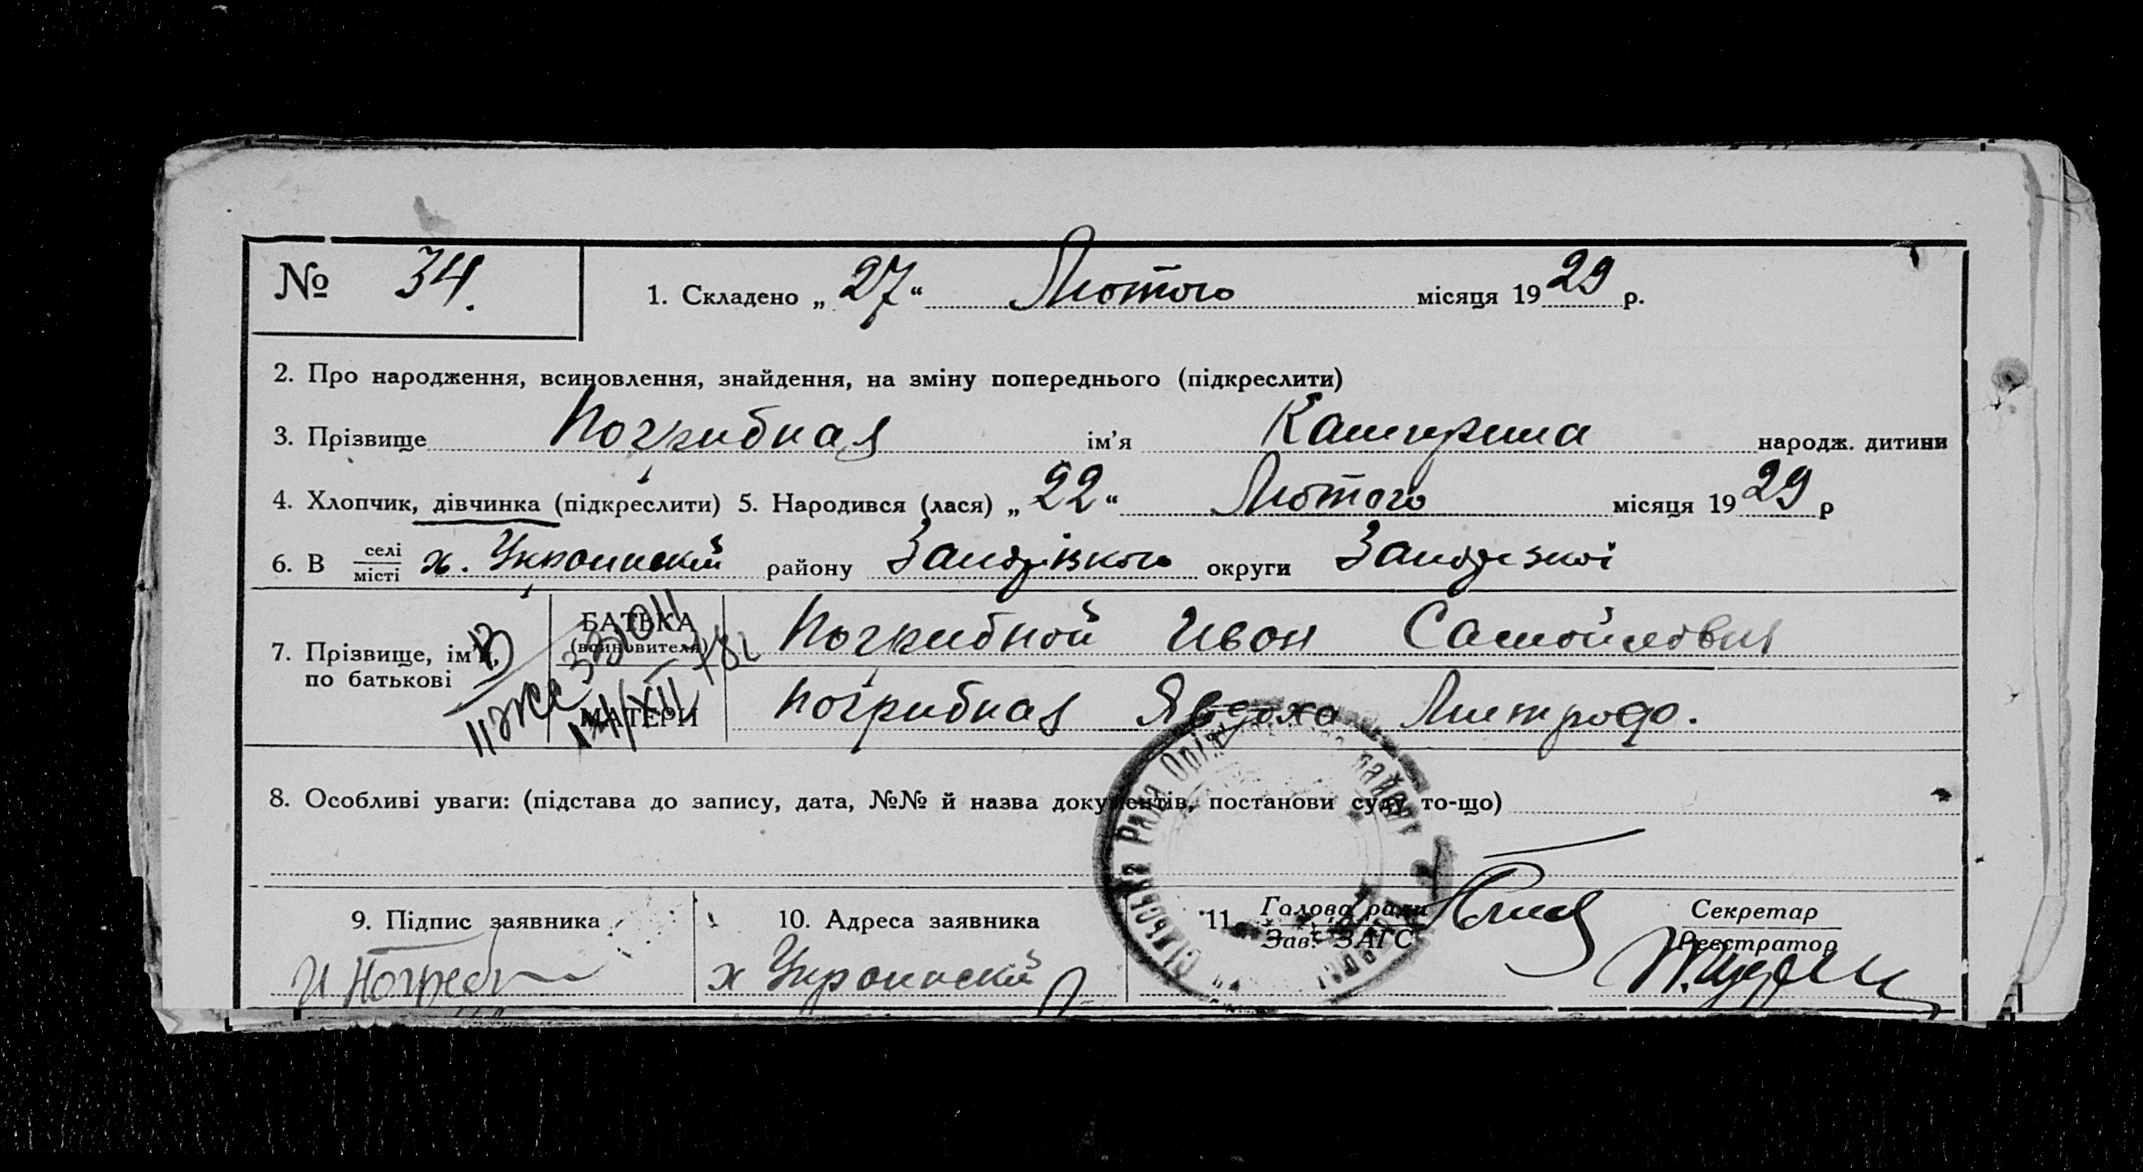 № 34. 1. Складено „ 27 “ Лютого місяця 1929 р.
2. Про народження, всиновлення, знайдення, на зміну попереднього (підкреслити)
3. Прізвище Погрибная ім’я Катирина народж. дитини
4. Хлопчик, дівчинка (підкреслити) 5. Народився (лася) „ 22 “ Лютого місяця 1929 р
6. В селі/місті х. Украинский району Запорізкого округи
7. Прізвище, ім’я, по батькові
БАТЬКА (всиновителя) Погрибной Ивон Самойлович
МАТЕРИ Погрибная Явдоха Митрофо.
8. Особливі уваги: (підстава до запису, дата, №№ й назва документів, постанови суду то-що)
Сільська Рада
9. Підпис заявника 10. Адреса заявника 11. Голова ради Секретар
Зав. ЗАГС Реєстратор
И Погреб х Украинский